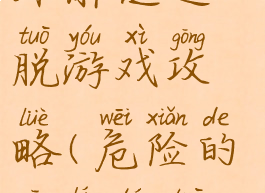 tuō yóu xì gōng
脱游戏攻
lüè wēi xiǎn de
略(危险的